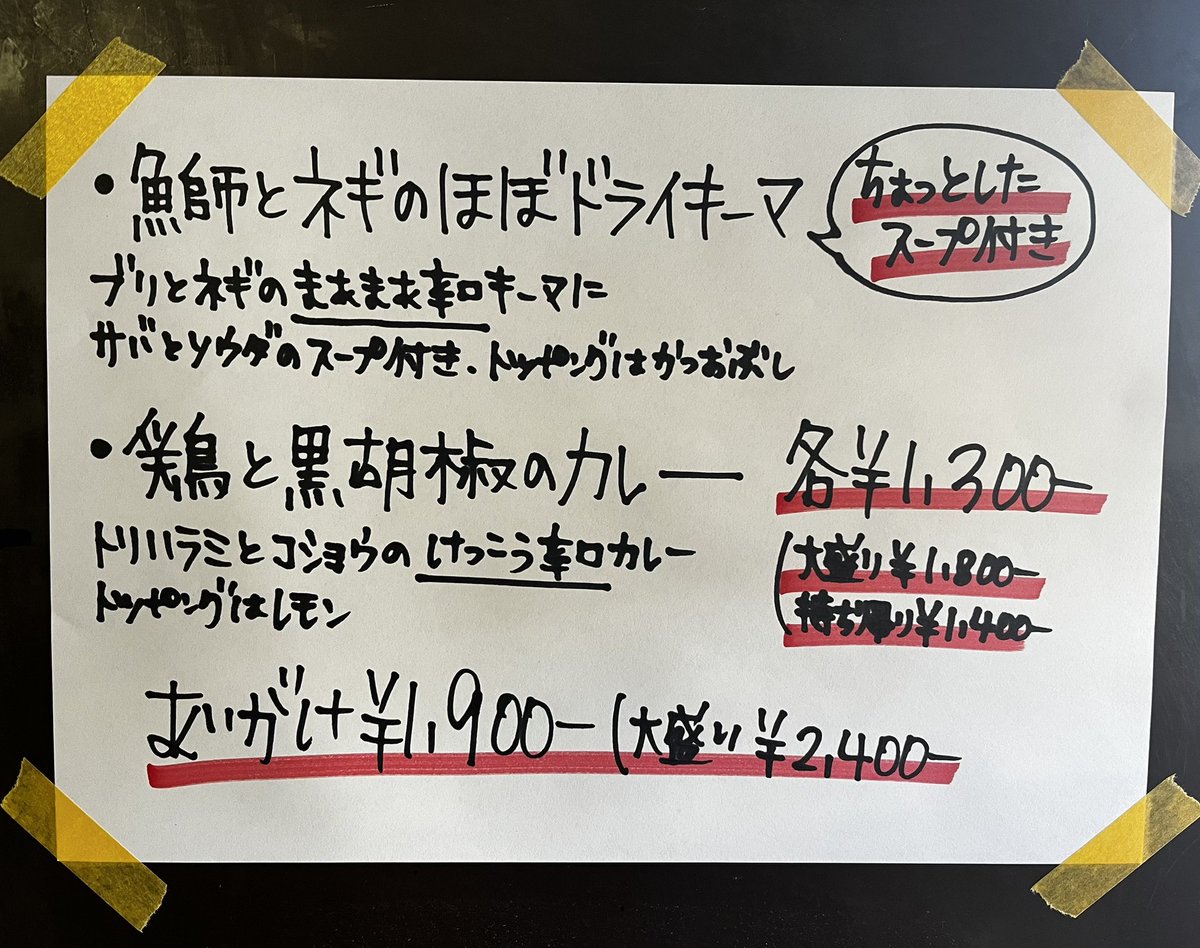 ・鰤とネギのほぼドライキーマ
ちょっとした
スープ付き
ブリとネギのまあまあ辛口キーマに
サバとソウダのスープ付き、トッピングはかつおぼし
・鶏と黒胡椒のカレー
各¥1,300-
トリハラミとコショウのけっこう辛口カレー
トッピングはレモン
(大盛り¥1,800-
持ち帰り¥1,400-
あいがけ¥1,900-(大盛り¥2,400-